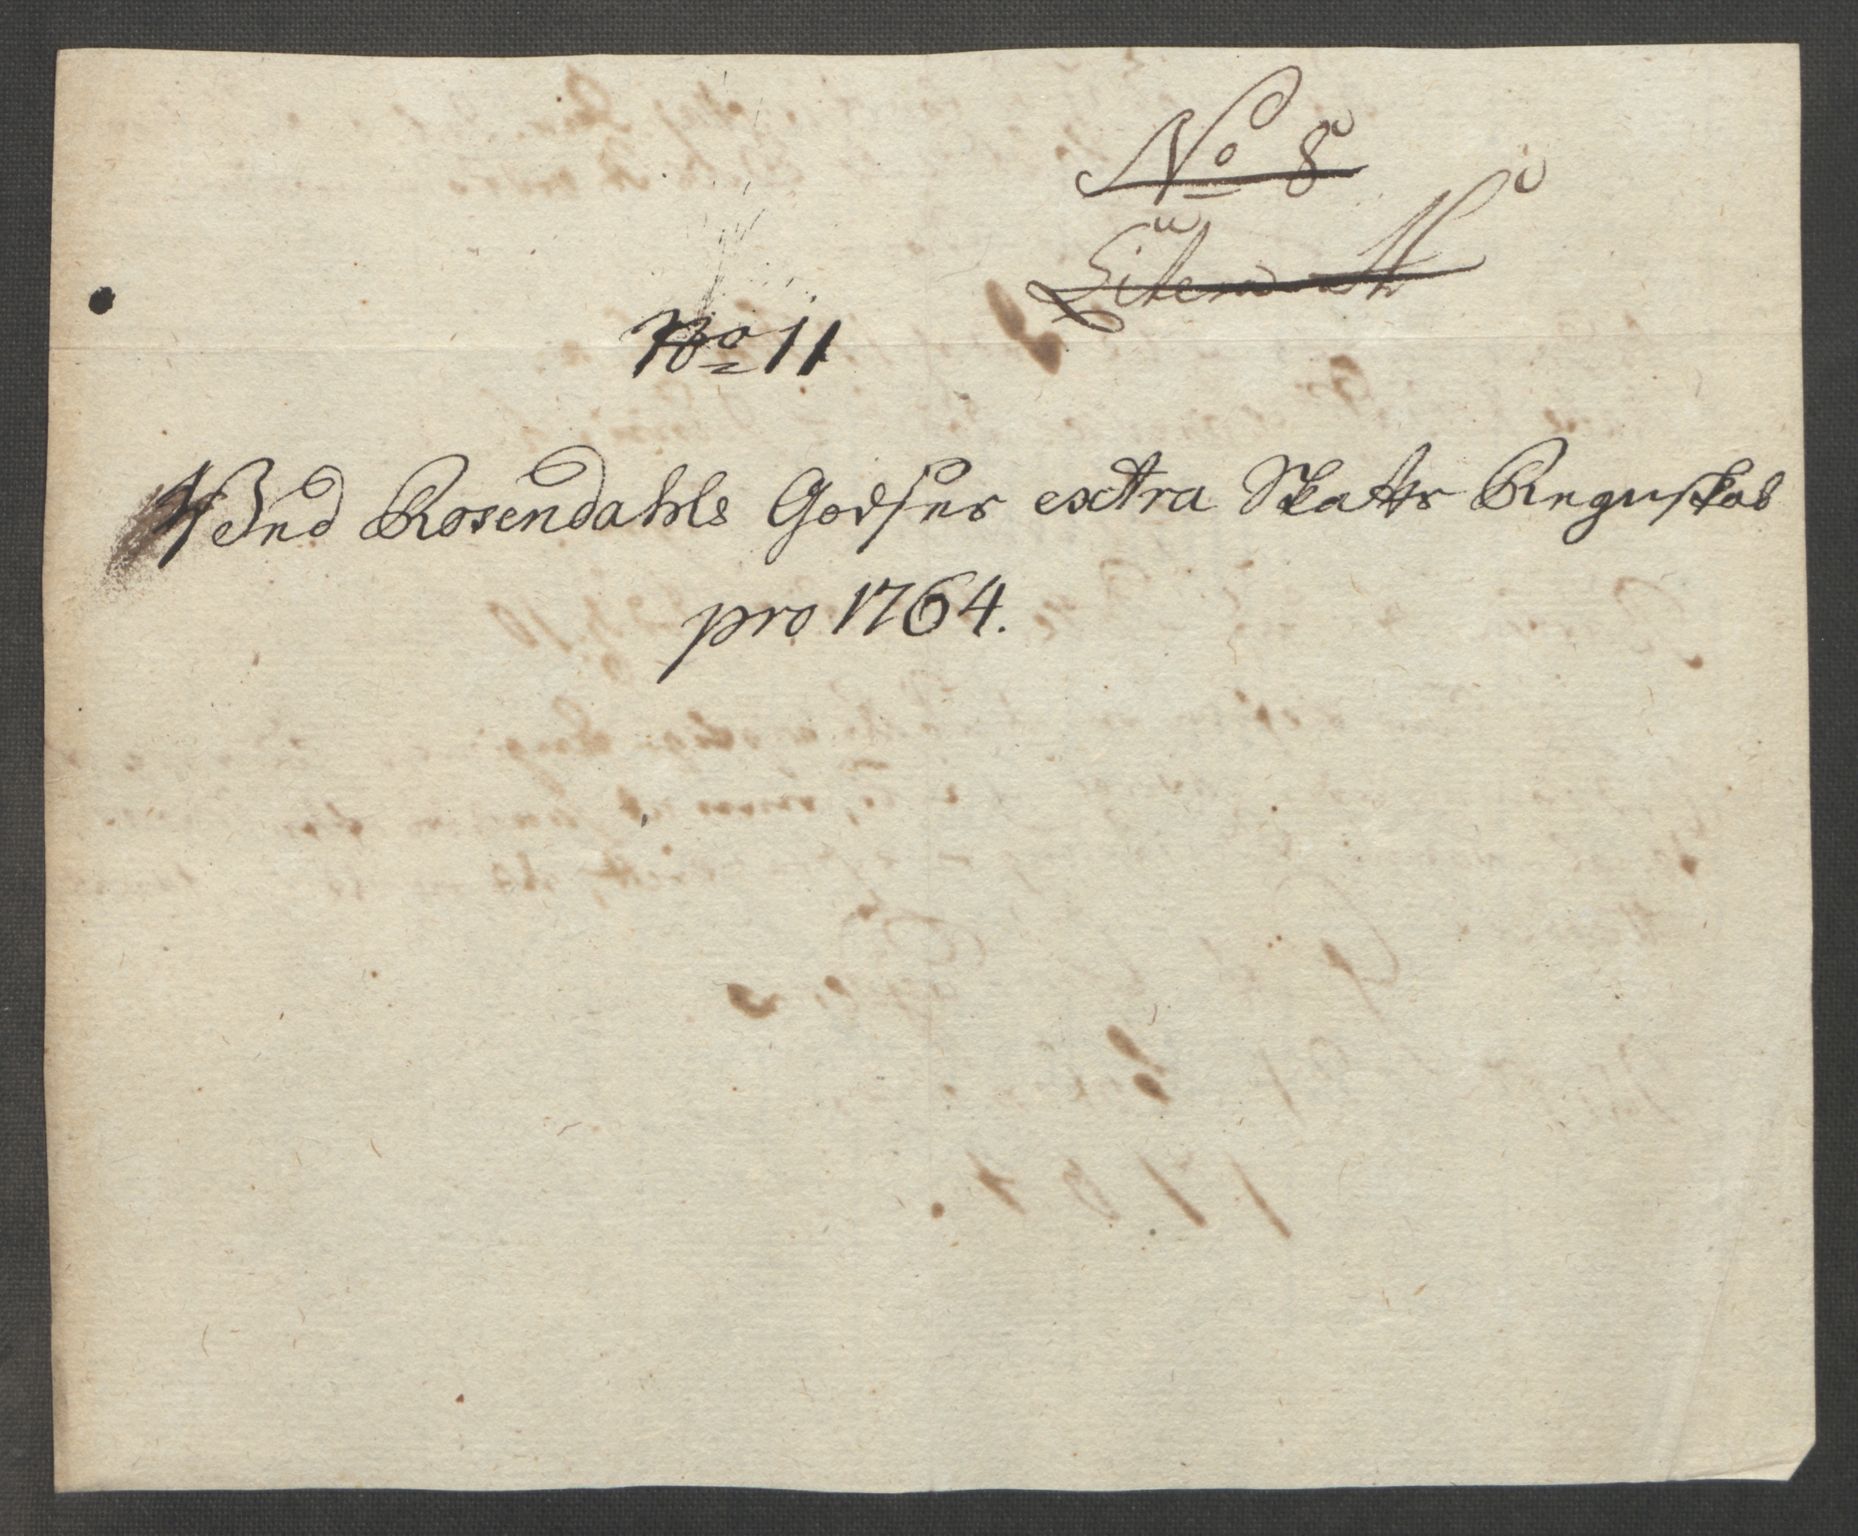 No 8
No 11
Ved Rosendahls Godses extra Skatts Regnskab
pro 1764.